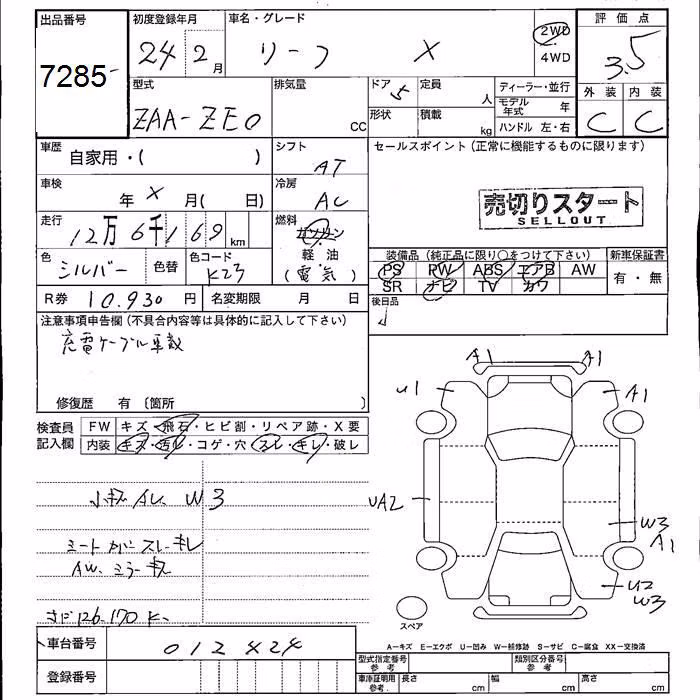 出品番号 初度登録年月 車名・グレード 評価点
7285- 24 2月 リーフ X 2WD 4WD 3.5
型式 排気量 ドア 5 定員 人 ディーラー・並行 外装 内装
ZAA-ZE0 cc 形状 積載 kg モデル年式 年 C C
ハンドル 左・右
車歴 自家用・( ) シフト AT セールスポイント (正常に機能するものに限ります)
車検 年 X 月( 日) 冷房 AC 売切りスタート
SELLOUT
走行 12万6千169km 燃料 ガソリン
軽油
(電気)
装備品 (純正品に限り○をつけて下さい) 新車保証書
色 シルバー 色替 色コード K23 PS PW ABS エアB AW 有・無
SR ナビ TV カワ
R券 10,930円 名変期限 月 日 後日品
注意事項申告欄 (不具合内容等は具体的に記入して下さい)
充電ケーブル車載
修復歴 有 〔箇所
検査員記入欄 FW キズ・飛石・ヒビ割・リペア跡・X要
内装 キズ・汚レ・コゲ・穴・スレ・キレ・破レ
小キズ AU、W3
シートカバー スレ キレ
AW、ミラーキズ
126,170 K
A1 A1
U1 A1
UA2 W3
A1
U2
W3
スペア
A-キズ E-エクボ U-凹み W-補修跡 S-サビ C-腐食 XX-交換済
車台番号 012424 型式指定番号 参考 類別区分番号 参考
登録番号 車庫証明用 参考. 長さ cm 幅 cm 高さ cm